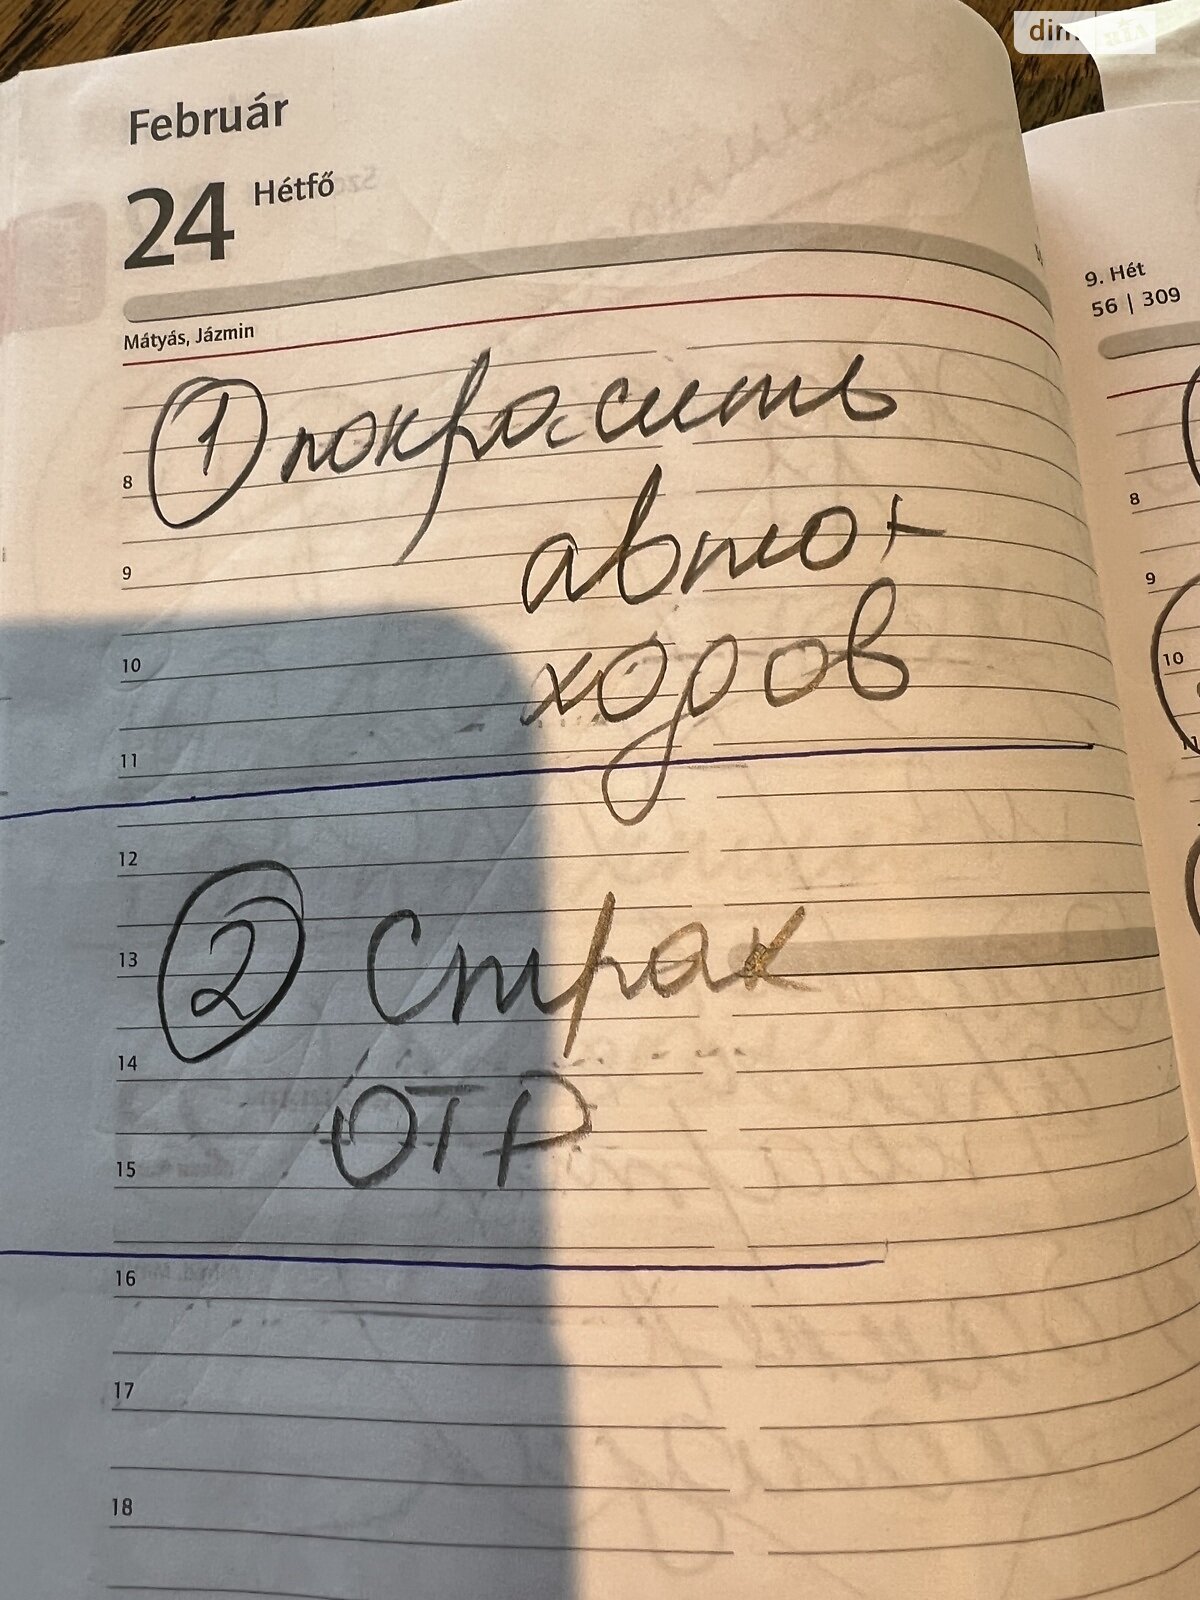 dim
Február
24 Hétfő
Mátyás, Jázmin
9. Hét
56 | 309
① покрасить
авто +
ходов
② Страх
ОТР
8
9
10
11
12
13
14
15
16
17
18
8
9
10
11